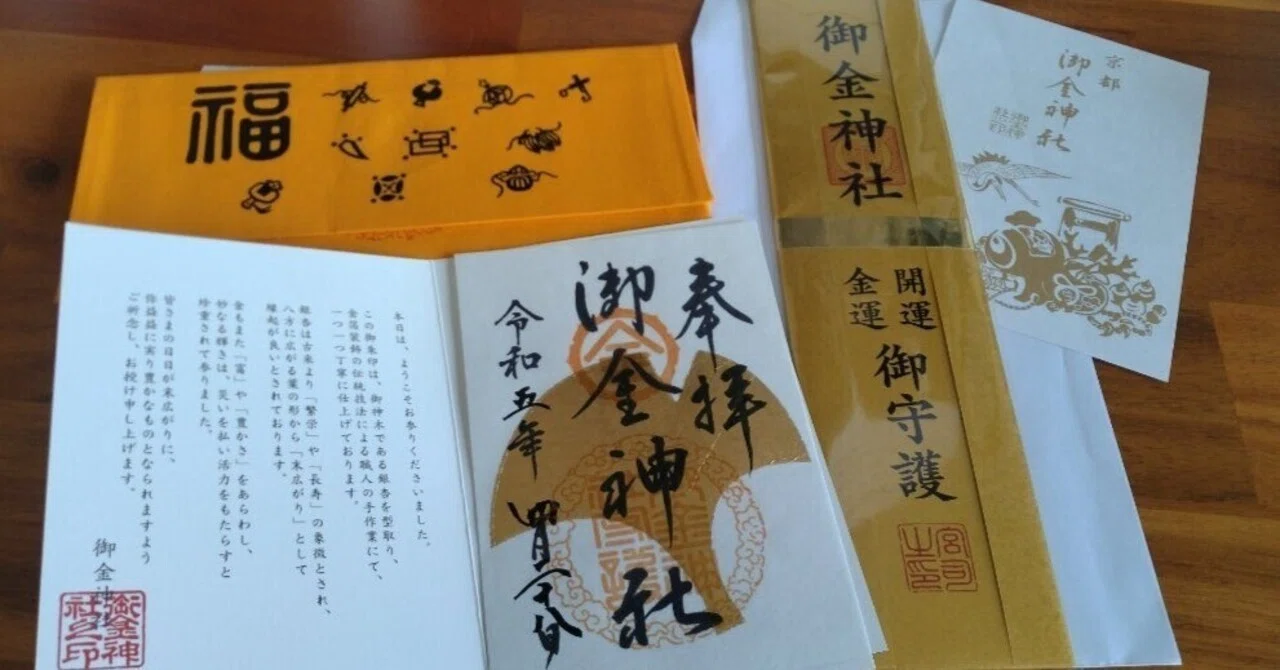 福
本日は、ようこそお参りくださいました。
この御朱印は、御神木である銀杏を型取り、
金箔装飾の伝統技法による職人の手作業にて、
一つ一つ丁寧に仕上げております。
銀杏は古来より「繁栄」や「長寿」の象徴とされ、
八方に広がる葉の形から「末広がり」として
縁起が良いとされております。
金もまた「富」や「豊かさ」をあらわし、
妙なる輝きは、災いを払い活力をもたらすと
珍重されて参りました。
皆さまの日日が末広がりに、
倖益益に実り豊かなものとなられますよう
ご祈念し、お授け申し上げます。
御金神社
御金神社之印
奉拝
御金神社
令和五年 四月
御金神社
開運
金運
御守護
宮司之印
京都
御金神社